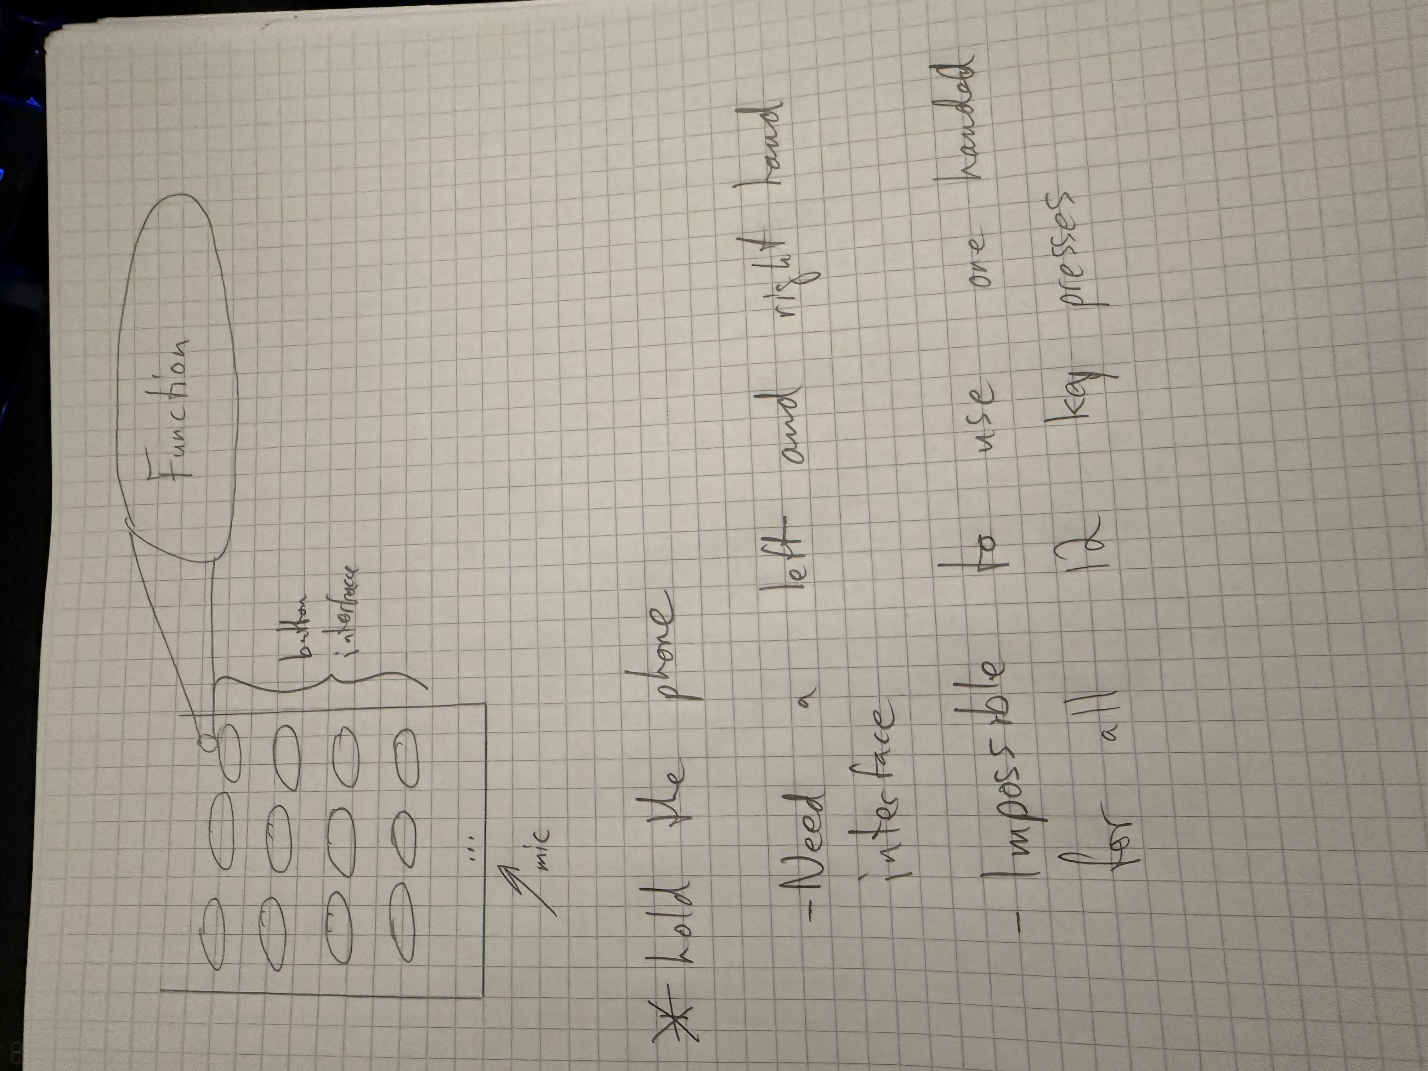 Function
button
interface
...
mic
* hold the phone
- Need a left and right hand
interface
- Impossible to use one handed
for all 12 key presses